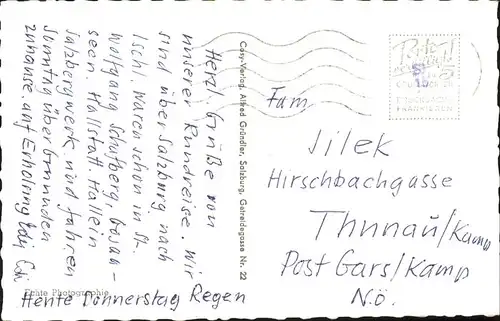 Herzl. Grüße von
unserer Rundreise. Wir
sind über Salzburg nach
Ischl. Waren schon in St.
Wolfgang, Schafberg, Gosau-
seen, Hallstatt, Hallein
Salzbergwerk, und fahren
Sonntag über Gmunden
zuhause auf Erholung
Heute Donnerstag Regen
Echte Photographie
Cosy-Verlag, Alfred Gründler, Salzburg, Getreidegasse Nr. 22
Fam.
Jilek
Hirschbachgasse
Thunau/Kamp
Post Gars/Kamp
N.Ö.